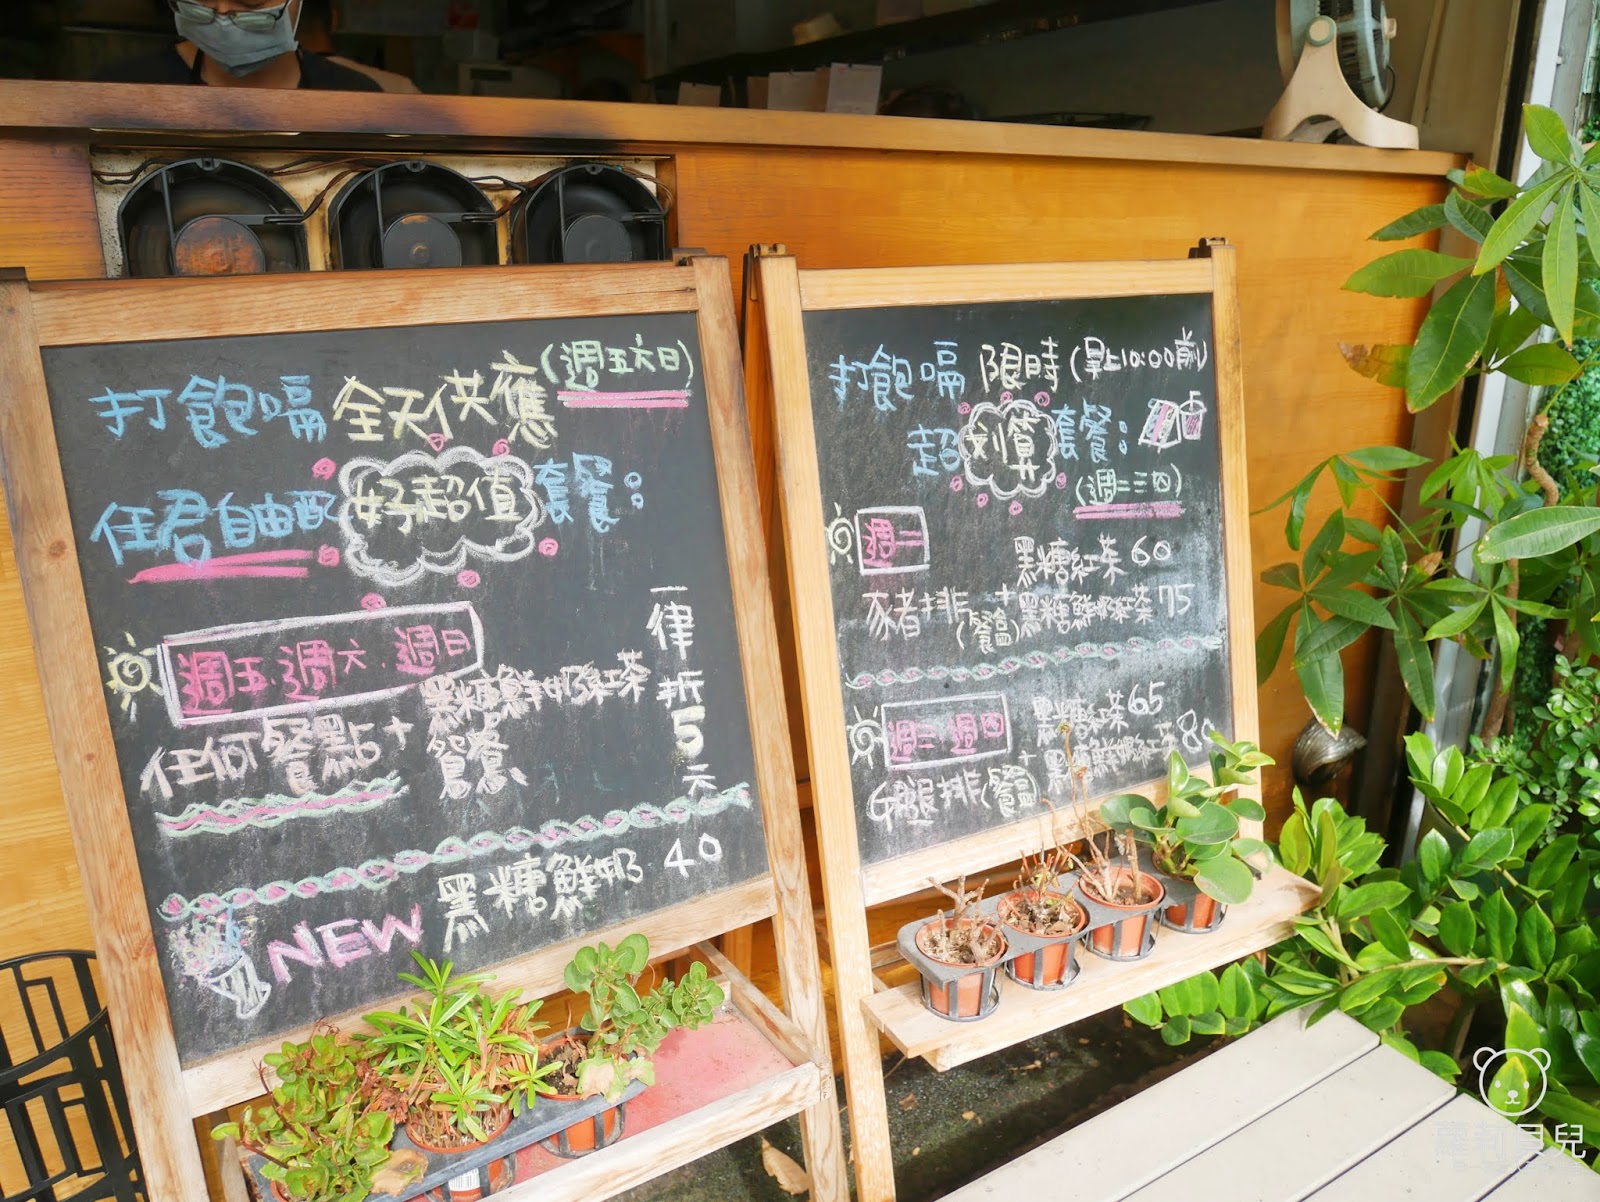 打飽嗝 全天供應 (週五六日)
任君自由配 好超值 套餐：
週五.週六.週日
任何餐點+ 黑糖鮮奶紅茶
鴛鴦
一律折5元
NEW 黑糖鮮奶 40
打飽嗝 限時 (早上10:00前)
超划算套餐：
(週二三四)
週二
黑糖紅茶 60
豕者排 + 黑糖鮮奶紅茶 75
週三 週四
黑糖紅茶 65
腿排 + 黑糖鮮奶紅茶
蘿莉貝兒